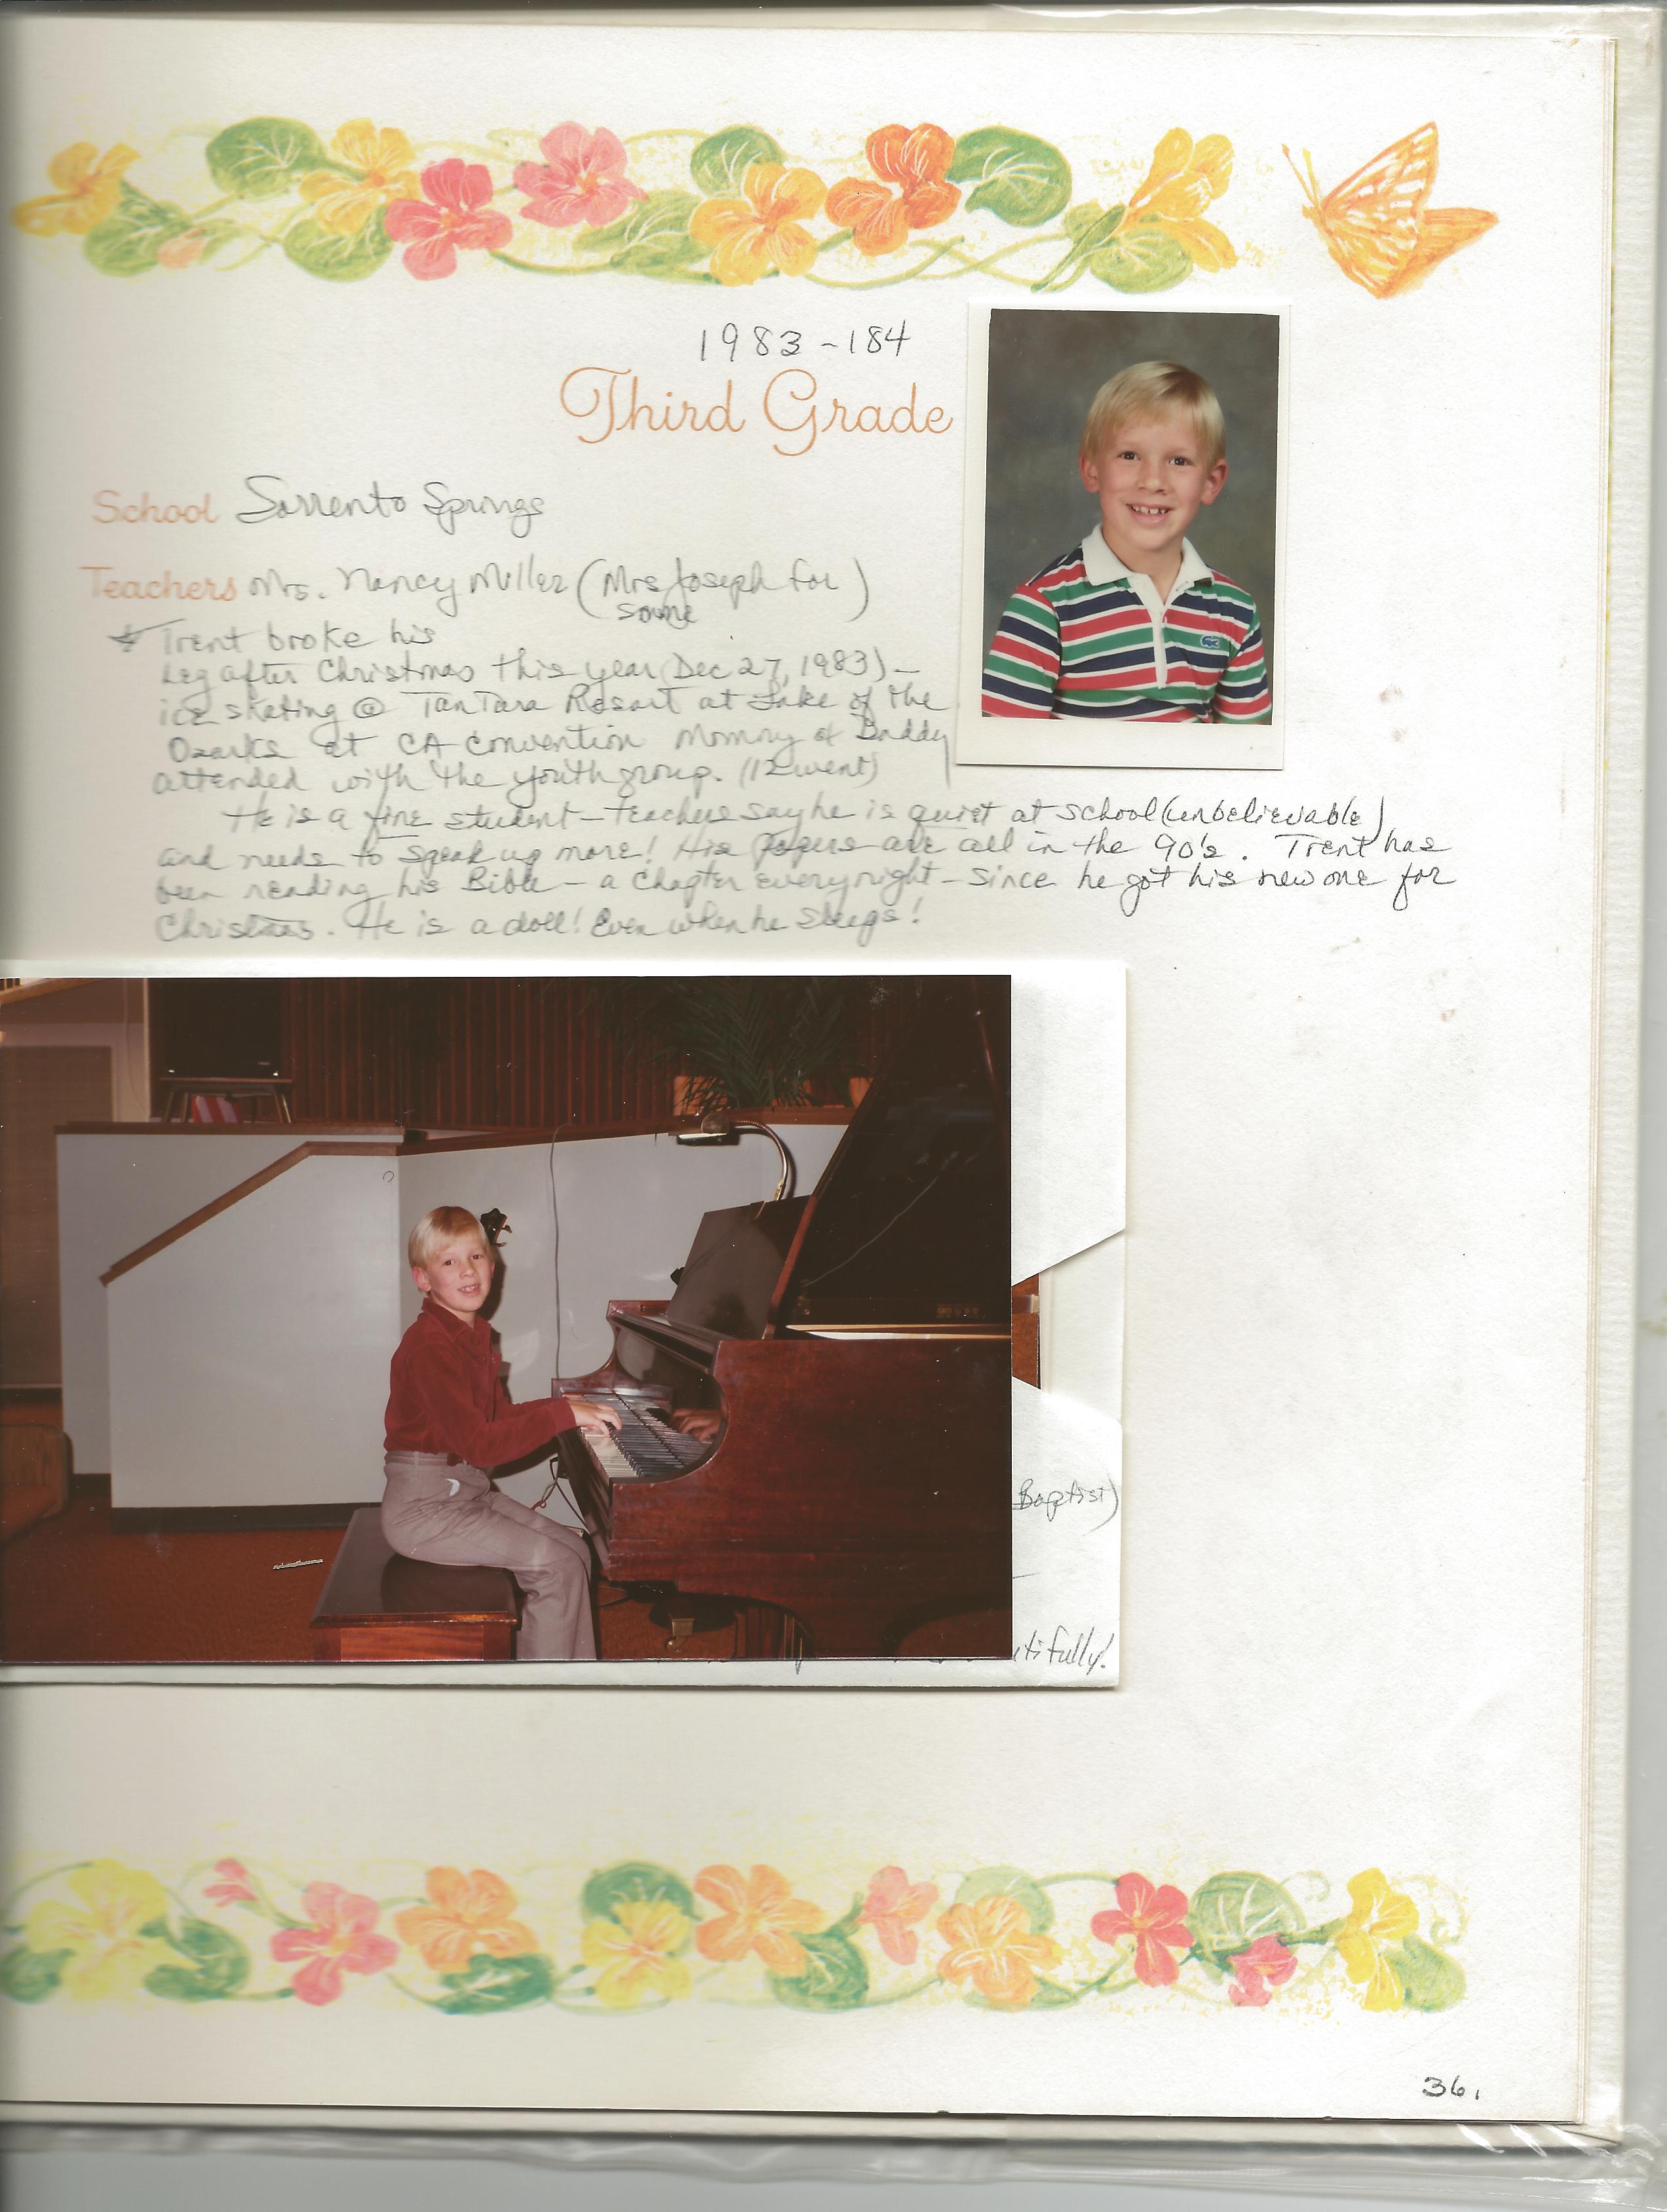 1983-'84
Third Grade
School Sorrento Springs
Teachers Mrs. Nancy Miller (Mrs Joseph for
some)
* Trent broke his
Leg after Christmas this year (Dec 27, 1983) -
ice skating @ TanTara Resort at Lake of the
Ozarks at CA convention Mommy & Daddy
attended with the youth group. (12 went)
He is a fine student - teachers say he is quiet at school (unbelievable)
and needs to speak up more! His papers are all in the 90's. Trent has
been reading his Bible - a chapter every night - since he got his new one for
Christmas. He is a doll! Even when he sleeps!
Baptist)
utifully!
36.